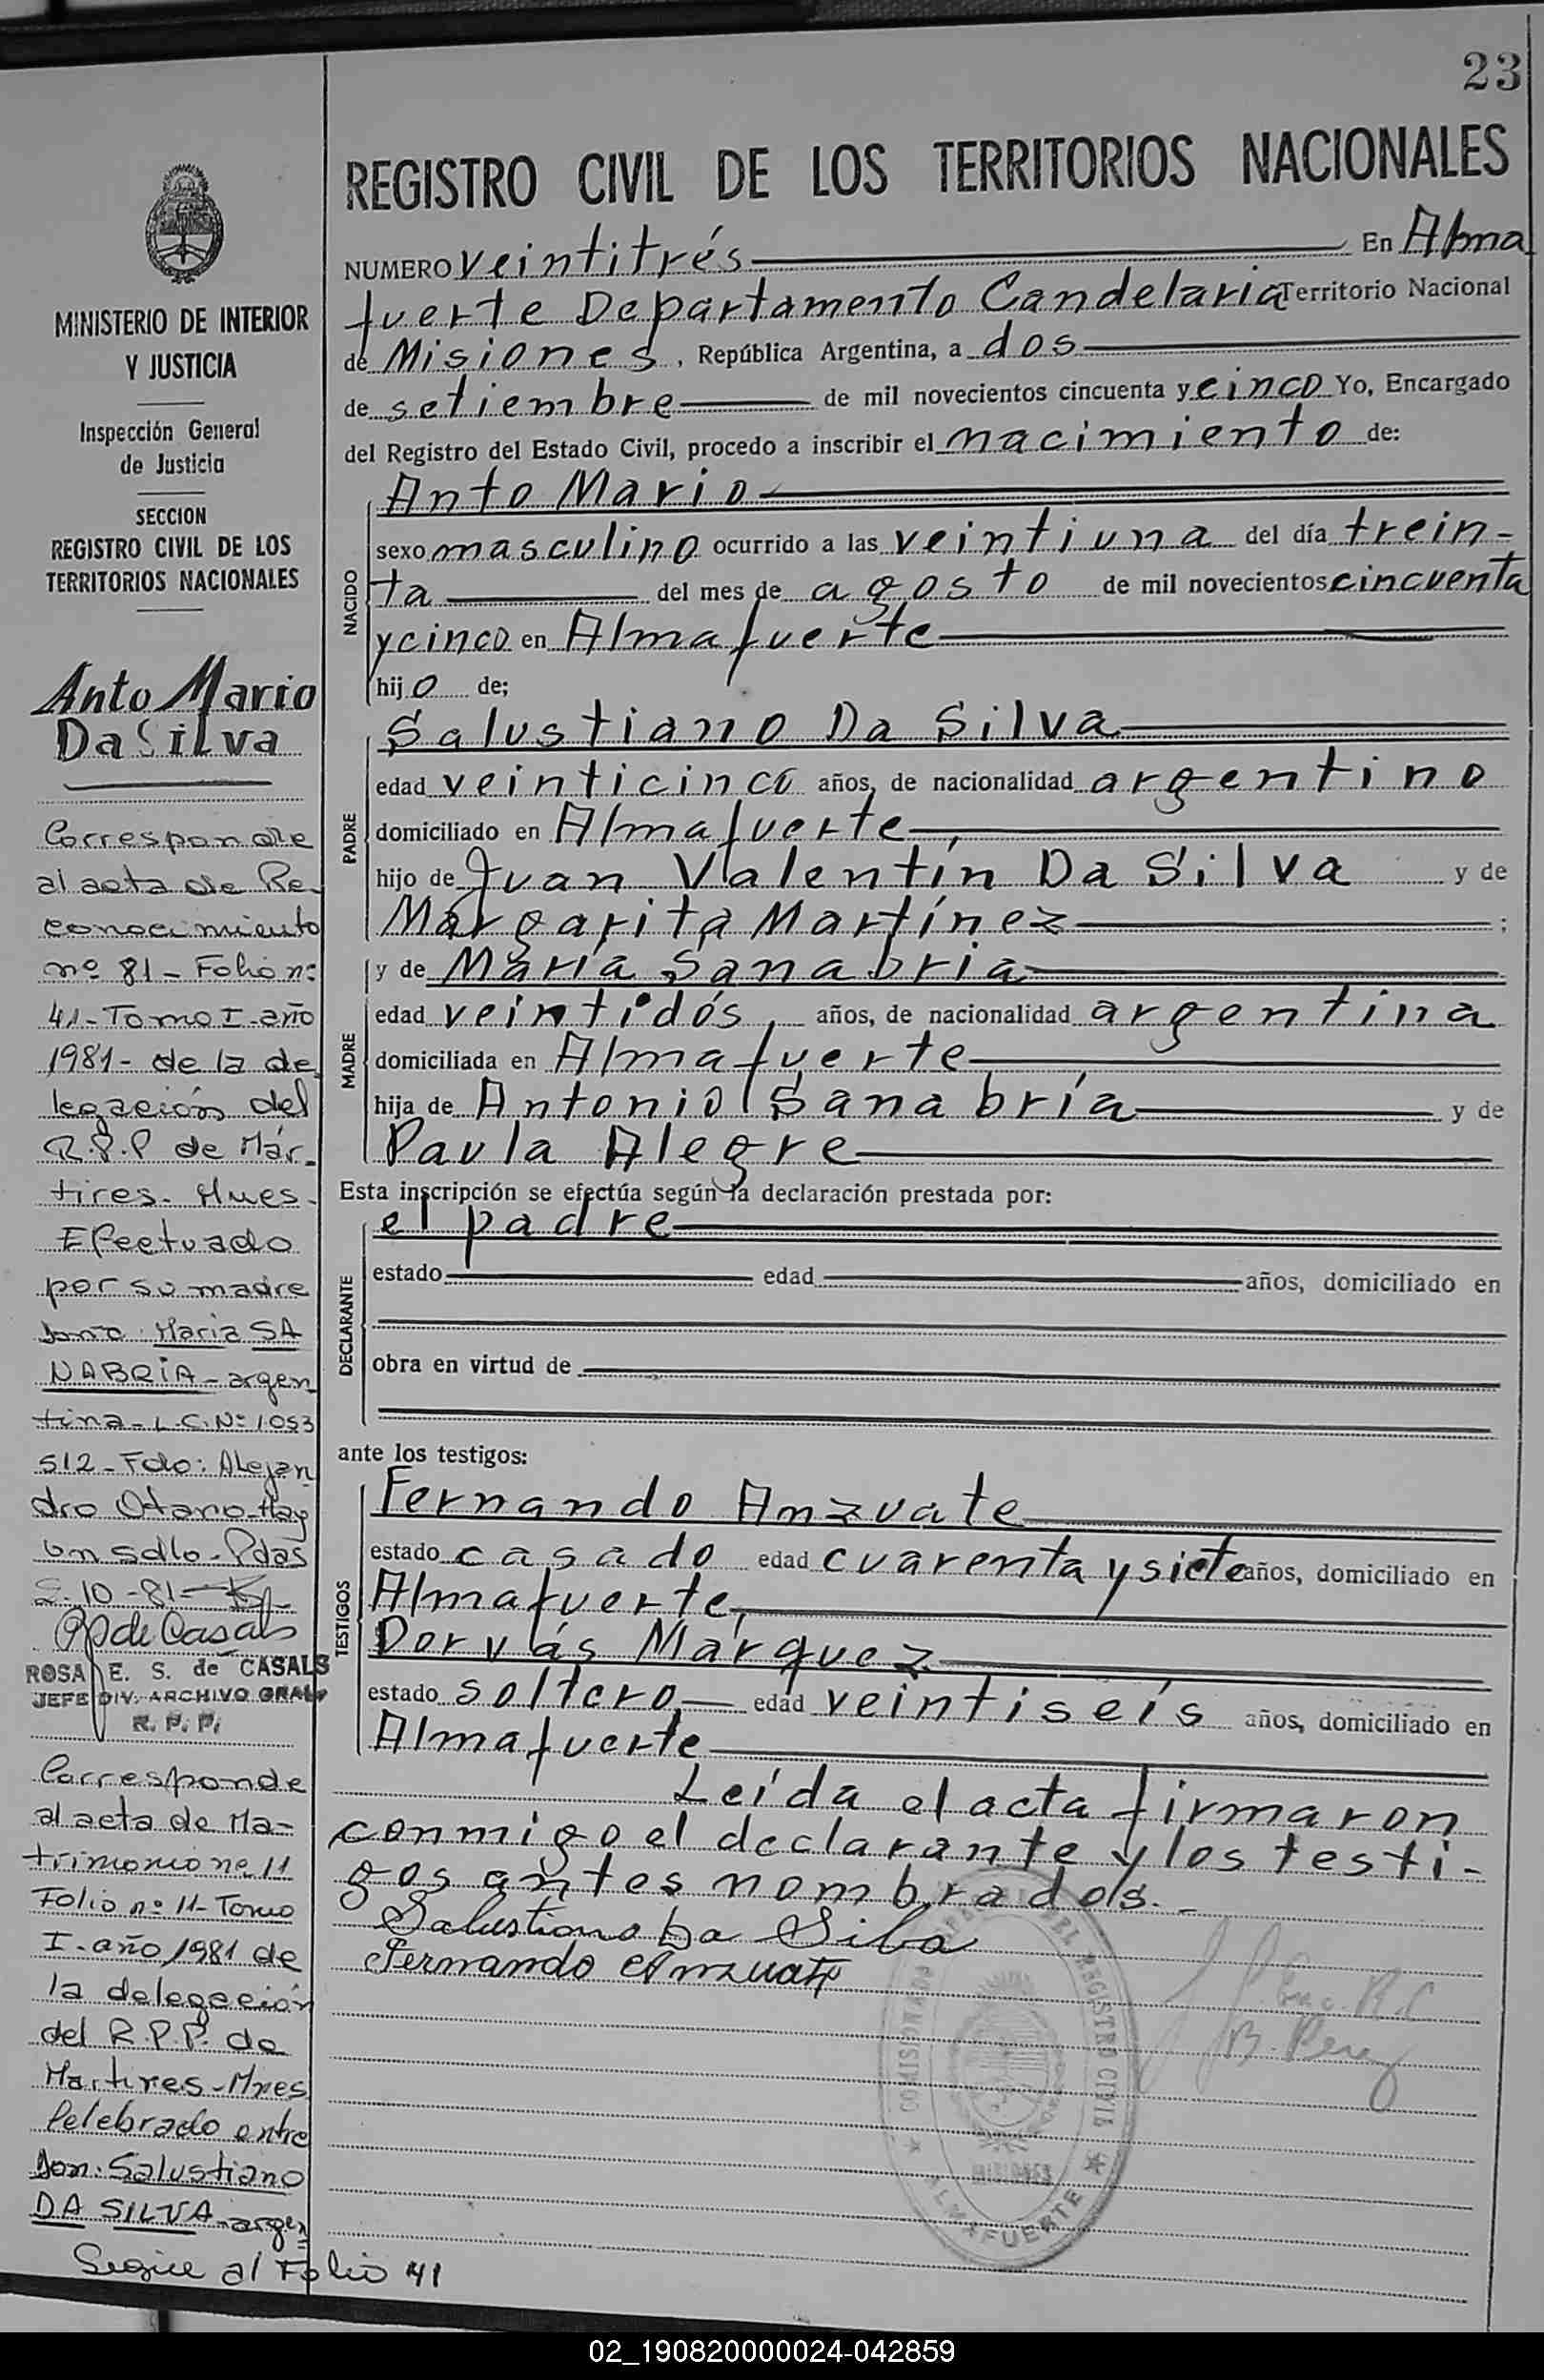 23
REGISTRO CIVIL DE LOS TERRITORIOS NACIONALES
NUMERO veintitrés En Alma
fuerte Departamento Candelaria Territorio Nacional
de Misiones, República Argentina, a dos
de setiembre de mil novecientos cincuenta y cinco Yo, Encargado
del Registro del Estado Civil, procedo a inscribir el nacimiento de:
NACIDO
Anto Mario
sexo masculino ocurrido a las veintiuna del día trein-
ta del mes de agosto de mil novecientos cincuenta
y cinco en Almafuerte
hijo de;
PADRE
Salustiano Da Silva
edad veinticinco años, de nacionalidad argentino
domiciliado en Almafuerte,
hijo de Juan Valentín Da Silva y de
Margarita Martínez ;
MADRE
y de María Sanabria
edad veintidós, años, de nacionalidad argentina
domiciliada en Almafuerte
hija de Antonio Sanabría y de
Paula Alegre
Esta inscripción se efectúa según la declaración prestada por:
DECLARANTE
el padre
estado edad años, domiciliado en
obra en virtud de
ante los testigos:
TESTIGOS
Fernando Amzuate
estado casado edad cuarenta y siete años, domiciliado en
Almafuerte,
Dorvás Márquez
estado soltero, edad veintiseís años, domiciliado en
Almafuerte
Leída el acta firmaron
conmigo el declarante y los testi-
gos antes nombrados.-
Salustiano Da Silva
Fernando Amzuate
Enc. R. C
B. Perez
COMISIONADO DEL REGISTRO CIVIL
MISIONES
ALMAFUERTE
MINISTERIO DE INTERIOR
Y JUSTICIA
Inspección General
de Justicia
SECCION
REGISTRO CIVIL DE LOS
TERRITORIOS NACIONALES
Anto Mario
Da Silva
Corresponde
al acta de Re-
conocimiento
nº 81 - Folio nº
41 - Tomo I - año
1981 - de la de
legación del
R.P.P de Már-
tires - Mnes -
Efectuado
por su madre
dona: Maria SA
NABRIA - argen
tina - L.C. Nº 1.053
512 - Fdo: Alejan
dro Otano - Hay
un sello - Pdas
2-10-81-
R p de Casals
ROSA E. S. de CASALS
JEFE DIV. ARCHIVO GRAL.
R. P. P.
Corresponde
al acta de Ma-
trimonio nº 11
Folio nº 11 - Tomo
I - año 1981 de
la delegación
del R.P.P. de
Martires - Mnes
Celebrado entre
Don: Salustiano
DA SILVA - argen
Segue al Folio 41
02_190820000024-042859